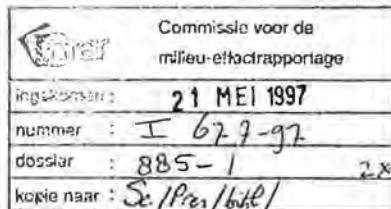 Commissie voor de
milieu-effectrapportage
ingekomen : 21 MEI 1997
nummer : I 627-97
dossier : 885-1 2x
kopie naar : Se/Pres/bibl/